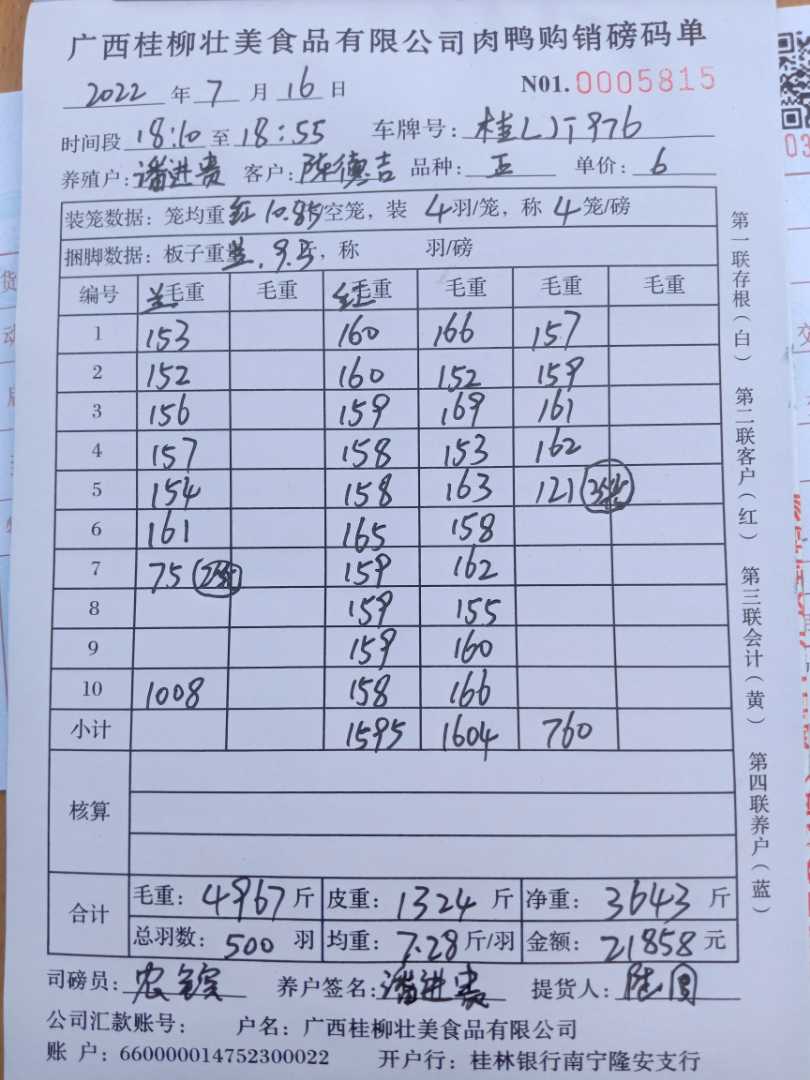 广西桂柳壮美食品有限公司肉鸭购销磅码单
2022 年 7 月 16 日 N01. 0005815
时间段 18:10 至 18:55 车牌号: 桂LJT976
养殖户: 潘进贵 客户: 陈德吉 品种: 正 单价: 6
装笼数据: 笼均重 红 10.85/空笼, 装 4 羽/笼, 称 4 笼/磅
捆脚数据: 板子重 兰. 9.5 斤, 称 羽/磅
编号 兰毛重 毛重 红毛重 毛重 毛重 毛重
1 153 160 166 157
2 152 160 152 159
3 156 159 169 161
4 157 158 153 162
5 154 158 163 121
6 161 165 158
7 75 159 162
8 159 155
9 159 160
10 1008 158 166
小计 1595 1604 760
核算
合计 毛重: 4967 斤 皮重: 1324 斤 净重: 3643 斤
总羽数: 500 羽 均重: 7.28 斤/羽 金额: 21858 元
司磅员: 养户签名: 潘进贵 提货人:
公司汇款账号: 户名: 广西桂柳壮美食品有限公司
账 户: 660000014752300022 开户行: 桂林银行南宁隆安支行
第一联存根(白) 第二联客户(红) 第三联会计(黄) 第四联养户(蓝)